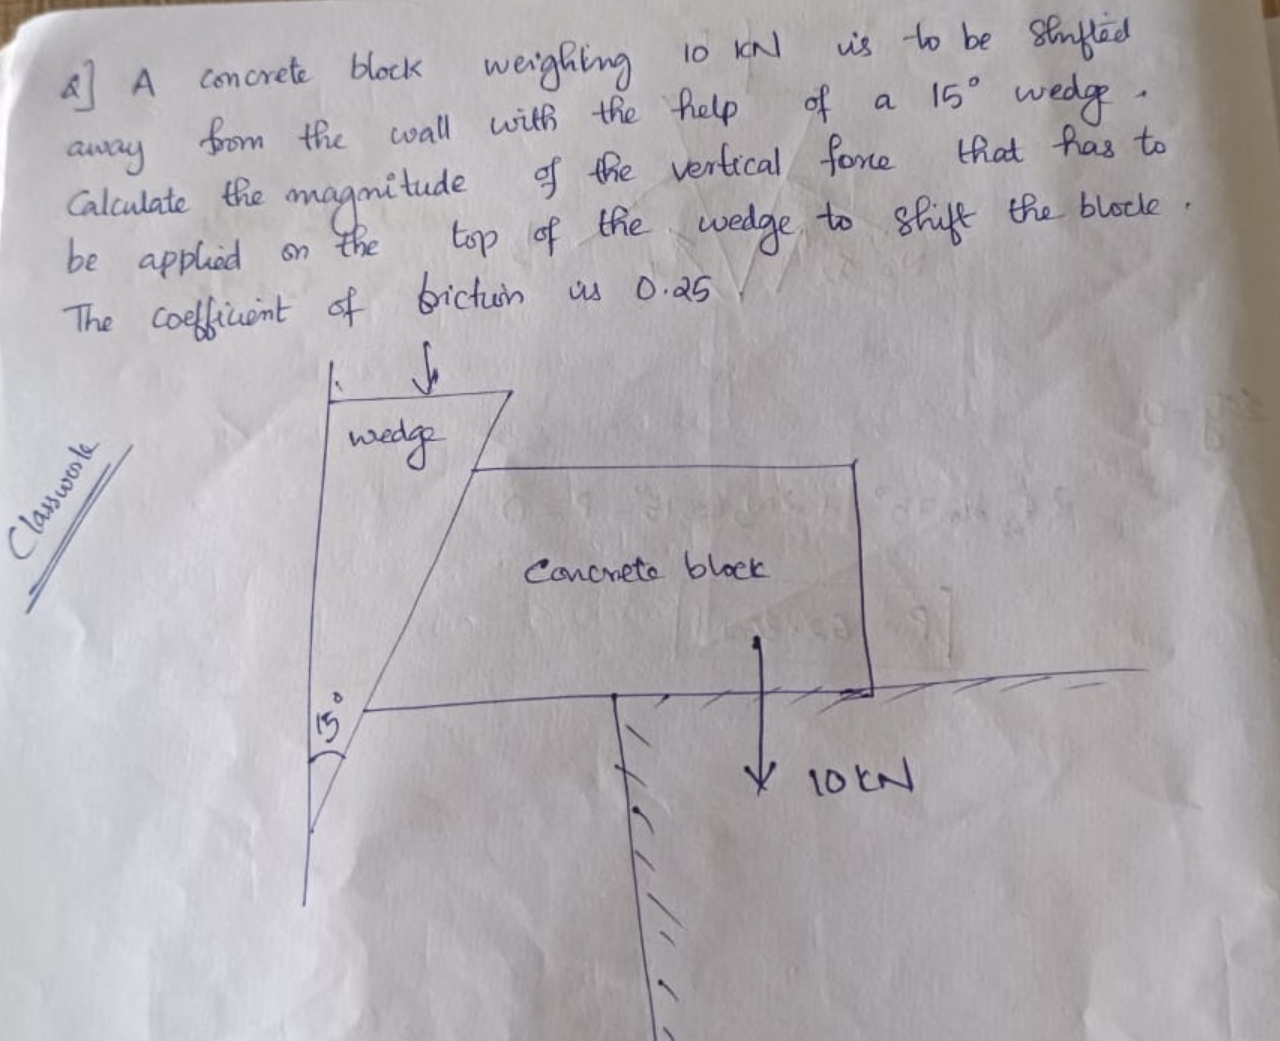 Q] A concrete block weighting 10 KN is to be shifted
away from the wall with the help of a 15° wedge.
Calculate the magnitude of the vertical force that has to
be applied on the top of the wedge, to shift the block.
The coefficient of friction is 0.25
wedge
Classwork
Concrete block
15°
10 KN